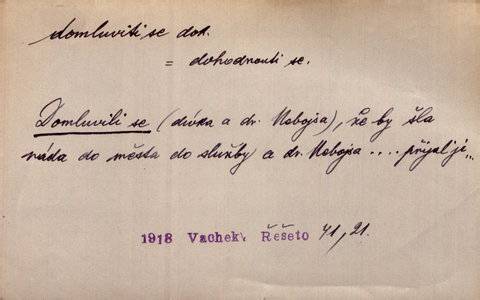 domluviti se dok.
= dohodnouti se.
Domluvili se (dívka a dr. Nebojsa), že by šla
ráda do města do služby a dr. Nebojsa .... přijal ji „
1918 Vachek, Řešeto 41, 21.